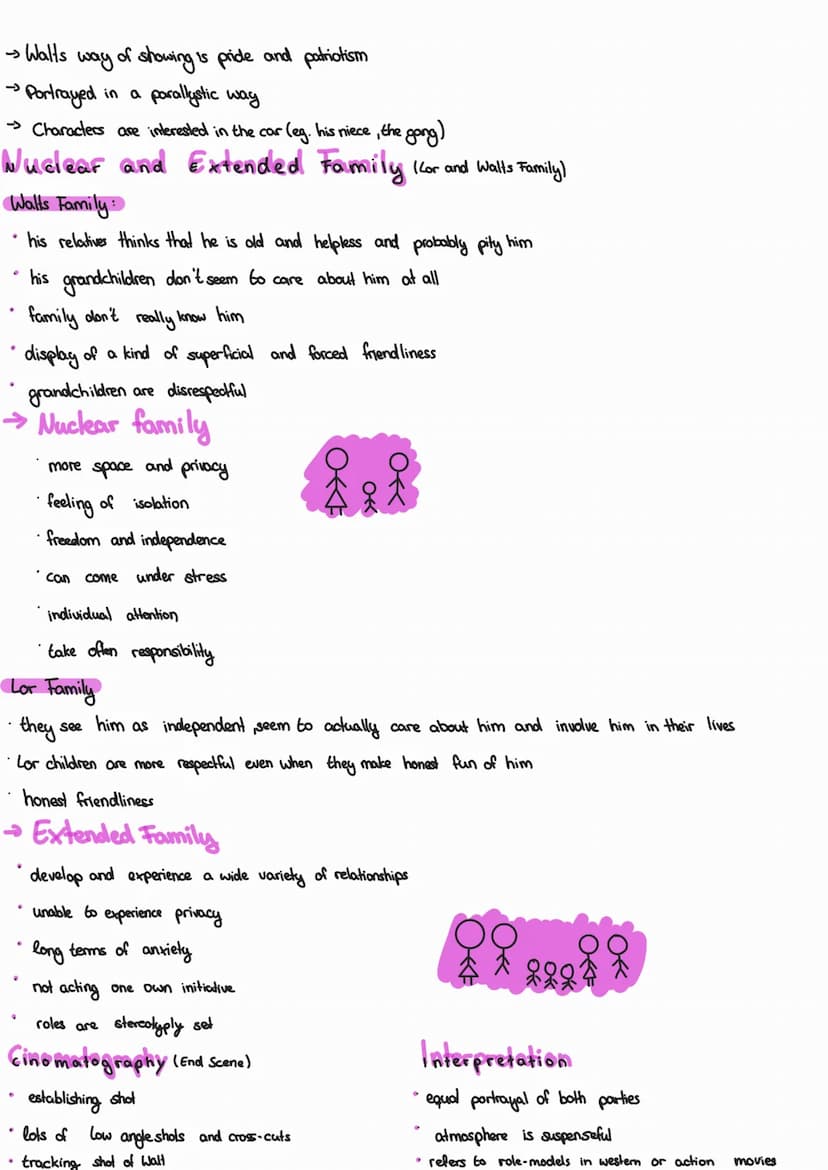 → Walts way of showing is pride and patriotism
→ Portrayed in a parallystic way
→ Characters are interested in the car (eg. his niece, the gang)
Nuclear and Extended Family (Lor and Walts Family)
Walts Family:
• his relatives thinks that he is old and helpless and probably pity him
• his grandchildren don't seem to care about him at all
• family don't really know him
• display of a kind of superficial and forced friendliness
• grandchildren are disrespectful
→ Nuclear family
· more space and privacy
· feeling of isolation
· freedom and independence
· can come under stress
· individual attention
· take often responsibility
Lor Family
· they see him as independent, seem to actually care about him and involve him in their lives
· Lor children are more respectful even when they make honest fun of him
· honest friendliness
→ Extended Family
• develop and experience a wide variety of relationships
• unable to experience privacy
• long terms of anxiety
• not acting one own initiative
• roles are stereotyply set
Cinematography (End Scene)
• establishing shot
• lots of low angle shots and cross-cuts
• tracking shot of Walt
Interpretation
• equal portrayal of both parties
• atmosphere is suspenseful
• refers to role-models in western or action movies